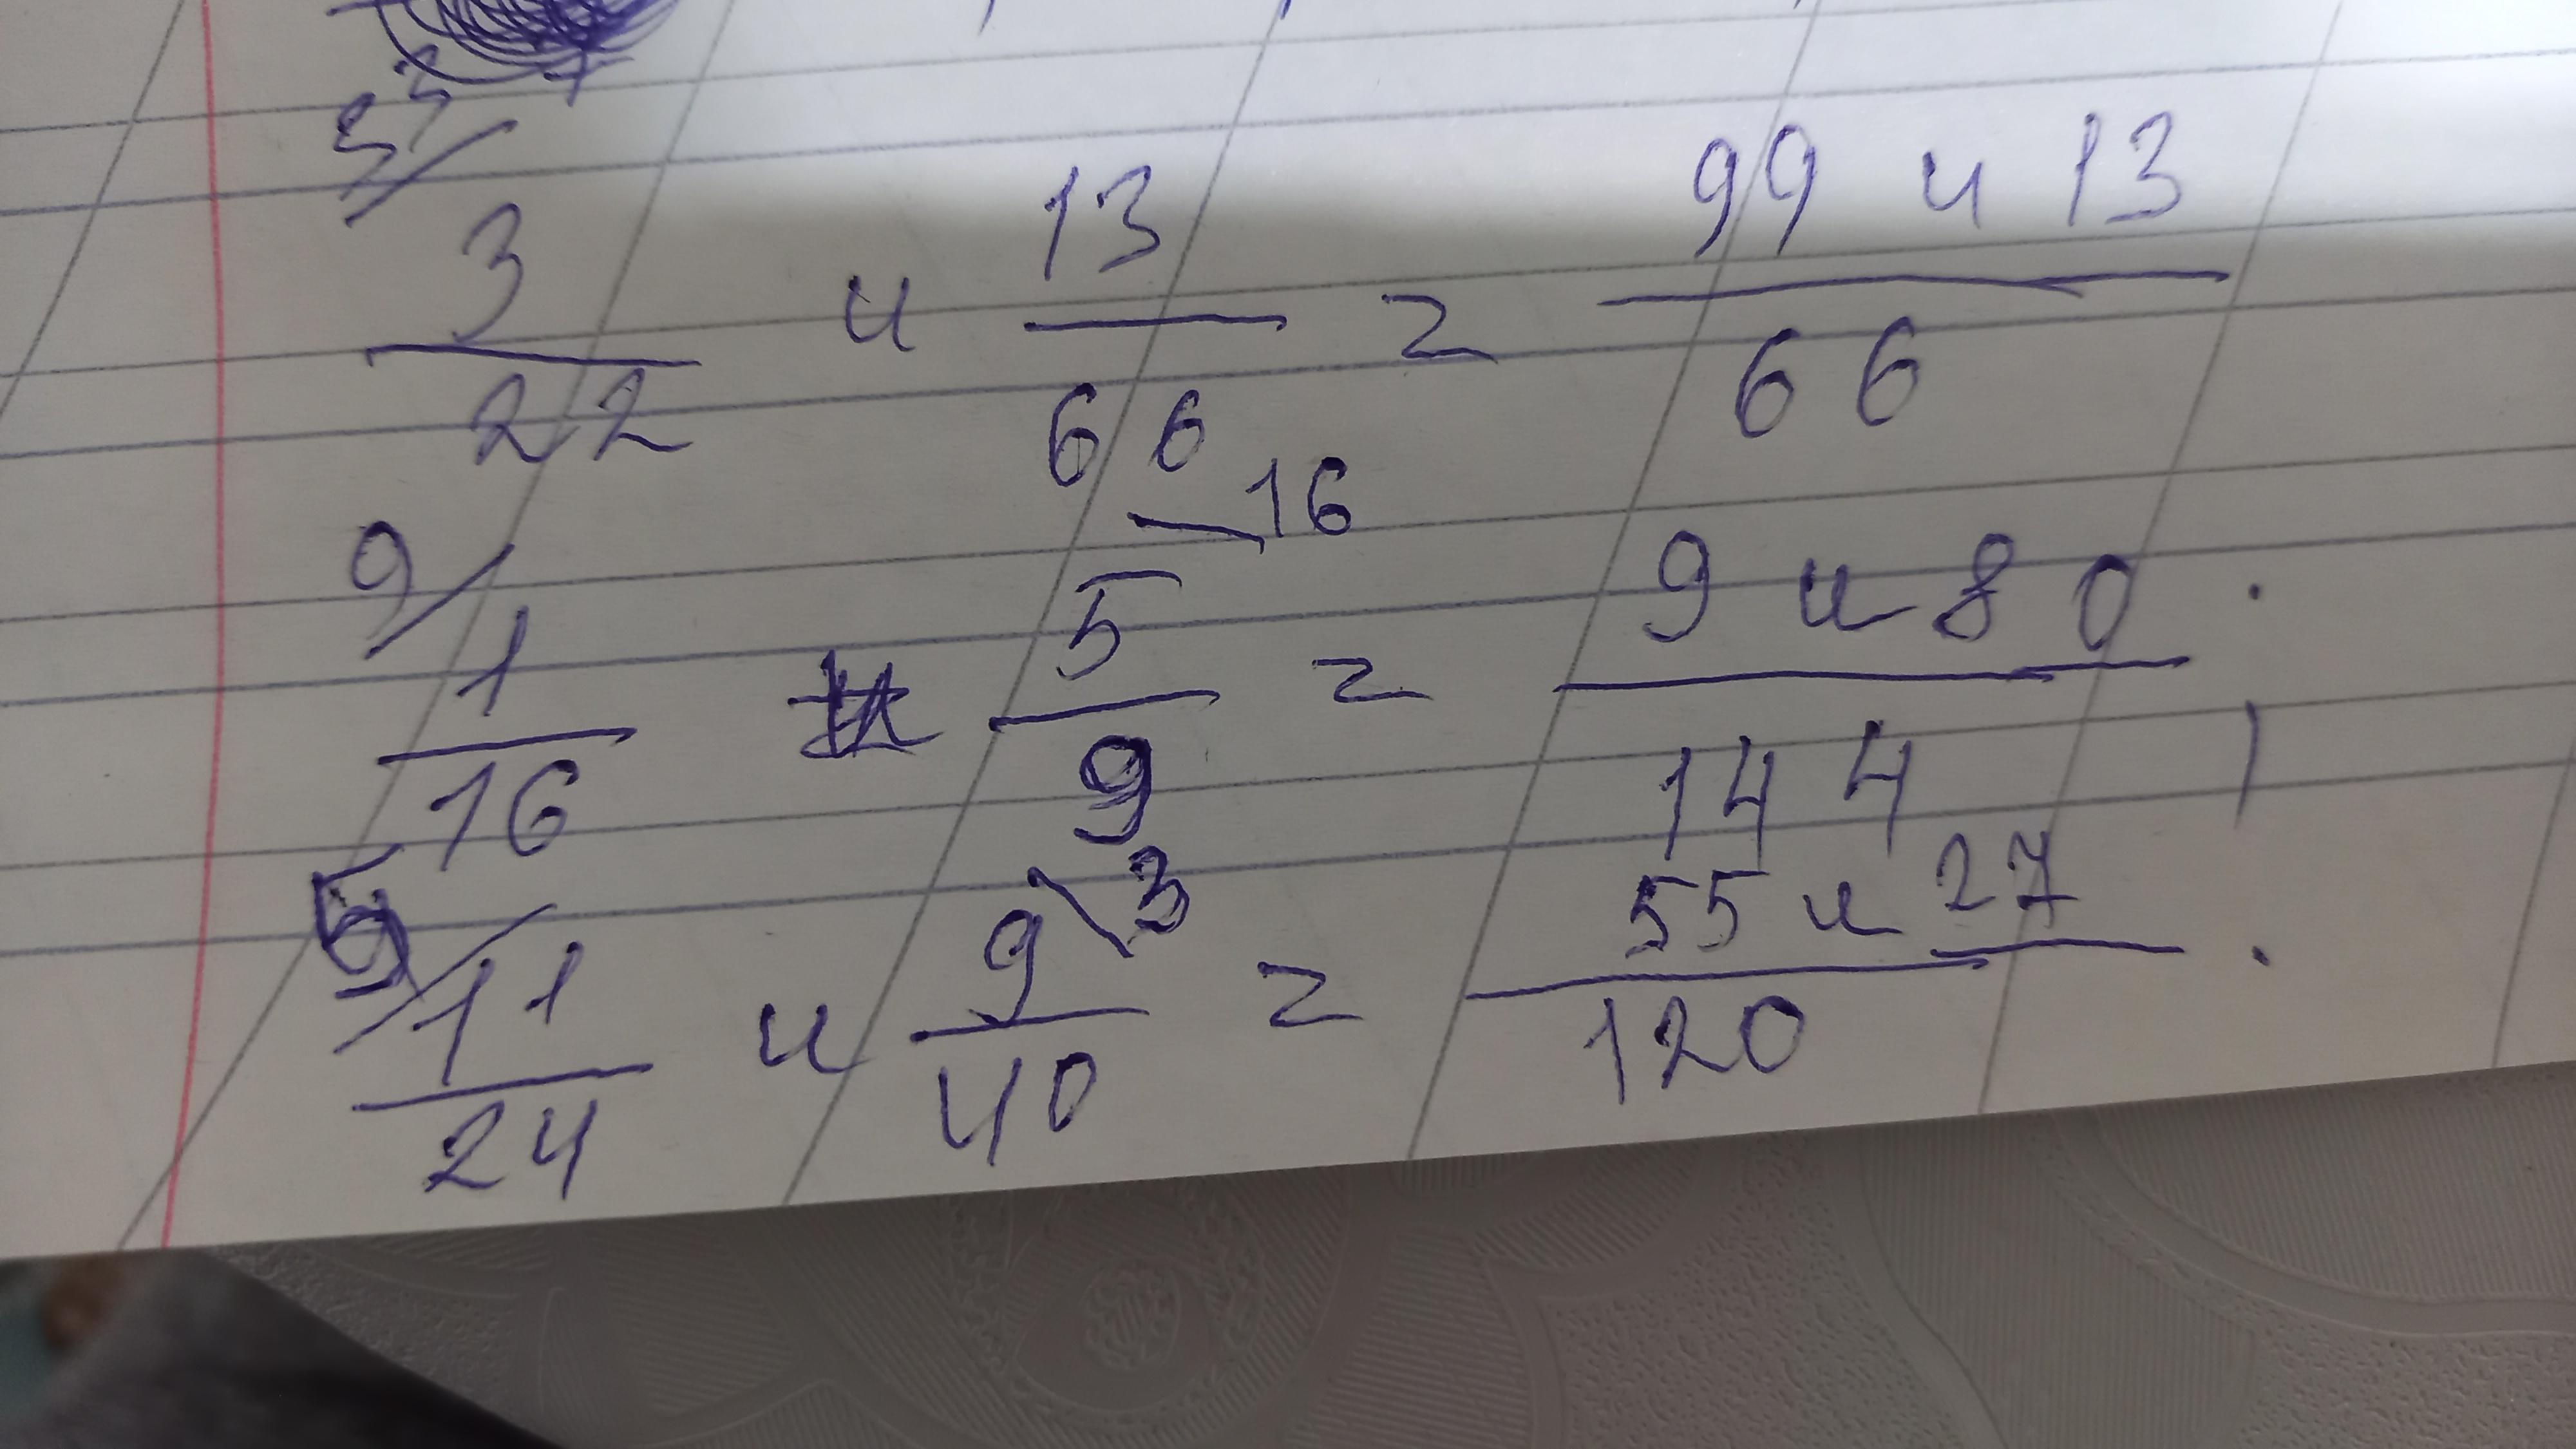 33/
3/22 и 13/66 = 99 и 13/66
9/ 1/16 и 5\16/9 = 9 и 80/144
5/ 11/24 и 9\3/40 = 55 и 27/120